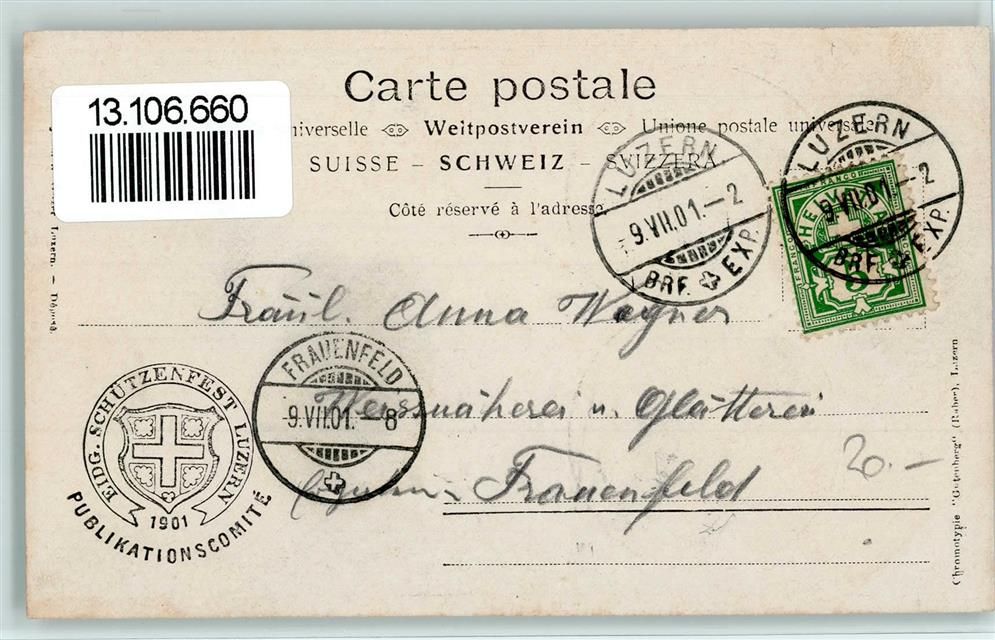 Carte postale
13.106.660
iverselle Weltpostverein Unione postale universale
SUISSE – SCHWEIZ – SVIZZERA
Côté réservé à l'adresse
LUZERN
9.VII.01.–2
BRF. EXP.
LUZERN
9.VII.01–2
BRF. EXP.
FRANCO
HELVETIA
Fräul. Anna Wagner
FRAUENFELD
9.VII.01.–8
Weissnäherei u. Glätterei
Frauenfeld
20.–
EIDG. SCHÜTZENFEST LUZERN
1901
PUBLIKATIONSCOMITÉ
Luzern. – Déposé.
Chromotypie "Gutenberg" (Räber), Luzern